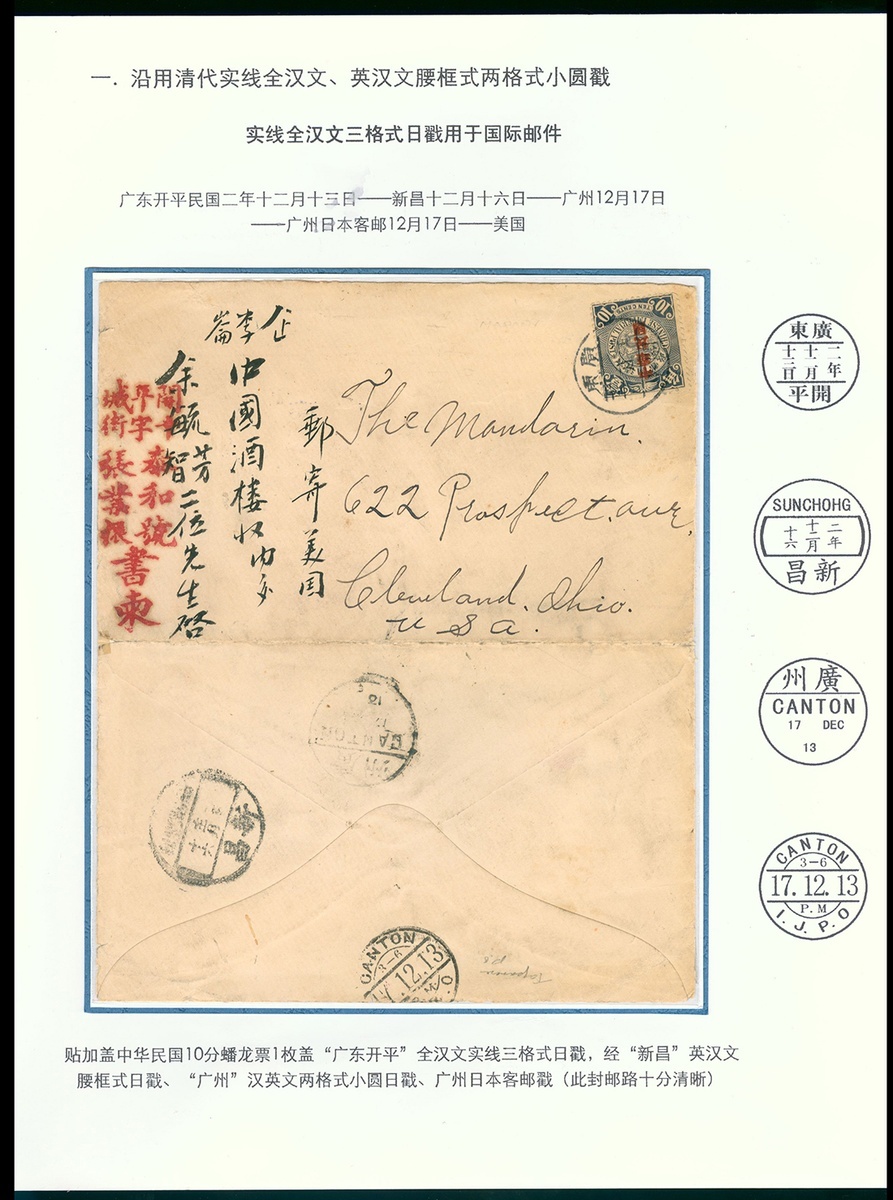 一. 沿用清代实线全汉文、英汉文腰框式两格式小圆戳
实线全汉文三格式日戳用于国际邮件
广东开平民国二年十二月十三日——新昌十二月十六日——广州12月17日
——广州日本客邮12月17日——美国
The Mandarin.
622 Prospect. ave,
Cleveland. Ohio.
U S A.
郵寄美国
中國酒楼收内交
余毓芳智二位先生啓
開平
字
城街
泰和號
張業振
書柬
廣東
CANTON
新昌
CANTON
3-6
12.13
東廣
十三日 十二月 二年
平開
SUNCHOHG
十六 十二月 二年
昌新
州廣
CANTON
17 DEC
13
CANTON
3-6
17.12.13
P.M
I.J.P.O
贴加盖中华民国10分蟠龙票1枚盖“广东开平”全汉文实线三格式日戳，经“新昌”英汉文
腰框式日戳、“广州”汉英文两格式小圆日戳、广州日本客邮戳（此封邮路十分清晰）